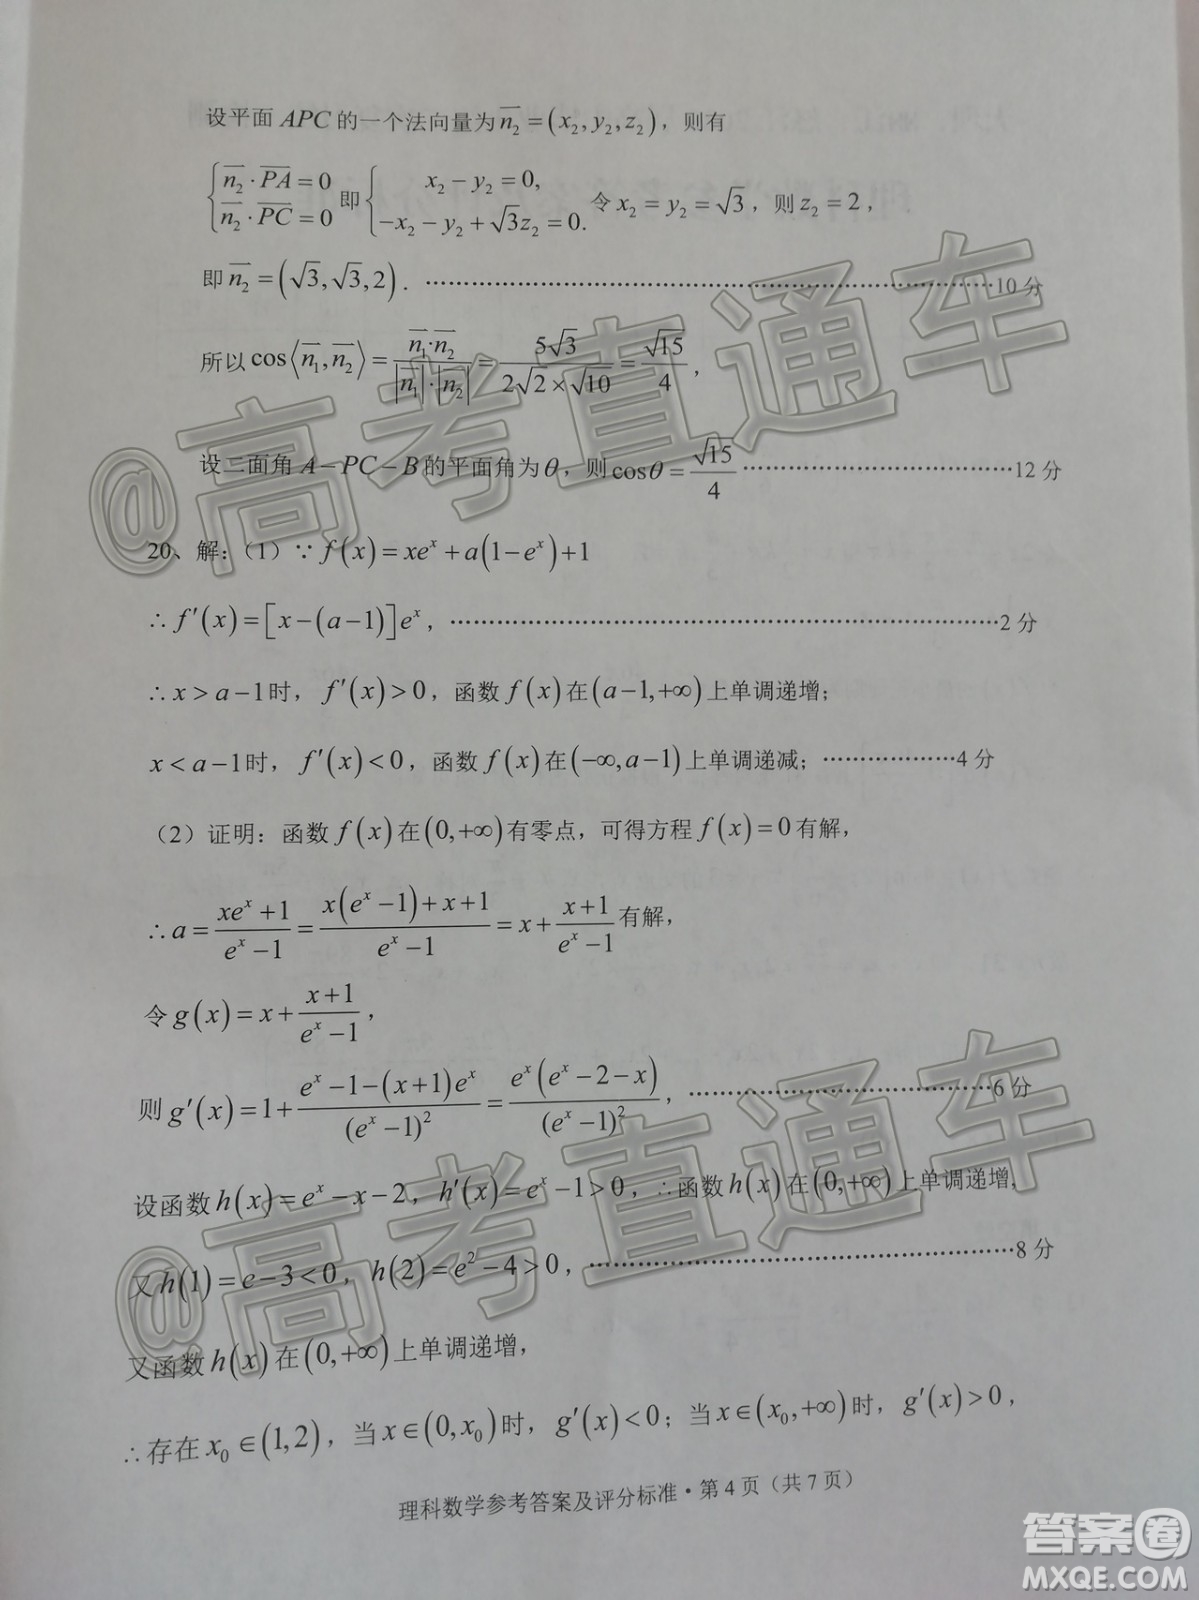 设平面 APC 的一个法向量为 $\overline{n_2}=(x_2,y_2,z_2)$，则有
$\begin{cases}\overline{n_2}\cdot\overline{PA}=0\\\overline{n_2}\cdot\overline{PC}=0\end{cases}$ 即 $\begin{cases}x_2-y_2=0,\\-x_2-y_2+\sqrt{3}z_2=0.\end{cases}$ 令 $x_2=y_2=\sqrt{3}$，则 $z_2=2$，
即 $\overline{n_2}=(\sqrt{3},\sqrt{3},2)$．……………………10 分
所以 $\cos\langle\overline{n_1},\overline{n_2}\rangle=\frac{\overline{n_1}\cdot\overline{n_2}}{|\overline{n_1}|\cdot|\overline{n_2}|}=\frac{5\sqrt{3}}{2\sqrt{2}\times\sqrt{10}}=\frac{\sqrt{15}}{4}$，
设二面角 A－PC－B 的平面角为 θ，则 $\cos\theta=\frac{\sqrt{15}}{4}$……………………12 分
20、解：（1）∵ $f(x)=xe^x+a(1-e^x)+1$
∴ $f'(x)=[x-(a-1)]e^x$，……………………2 分
∴ $x>a-1$ 时， $f'(x)>0$，函数 $f(x)$ 在 $(a-1,+\infty)$ 上单调递增；
$x<a-1$ 时， $f'(x)<0$，函数 $f(x)$ 在 $(-\infty,a-1)$ 上单调递减；………………4 分
（2）证明：函数 $f(x)$ 在 $(0,+\infty)$ 有零点，可得方程 $f(x)=0$ 有解，
∴ $a=\frac{xe^x+1}{e^x-1}=\frac{x(e^x-1)+x+1}{e^x-1}=x+\frac{x+1}{e^x-1}$ 有解，
令 $g(x)=x+\frac{x+1}{e^x-1}$，
则 $g'(x)=1+\frac{e^x-1-(x+1)e^x}{(e^x-1)^2}=\frac{e^x(e^x-2-x)}{(e^x-1)^2}$，……………………6 分
设函数 $h(x)=e^x-x-2$， $h'(x)=e^x-1>0$，∴函数 $h(x)$ 在 $(0,+\infty)$ 上单调递增，
又 $h(1)=e-3<0$， $h(2)=e^2-4>0$，……………………8 分
又函数 $h(x)$ 在 $(0,+\infty)$ 上单调递增，
∴存在 $x_0\in(1,2)$，当 $x\in(0,x_0)$ 时， $g'(x)<0$；当 $x\in(x_0,+\infty)$ 时， $g'(x)>0$，
理科数学参考答案及评分标准·第 4 页（共 7 页）
@高考直通车
@高考直通车
答案圈
MXQE.COM